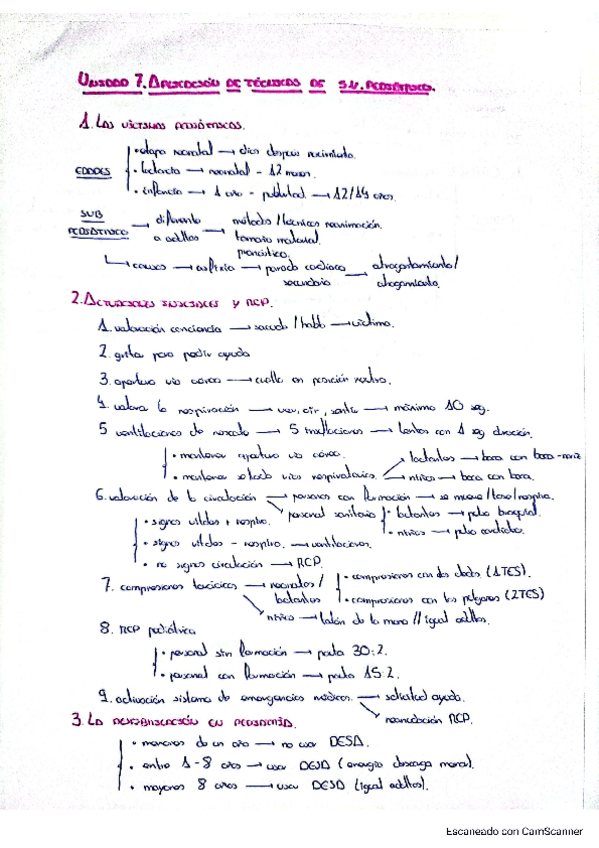 UNIDAD 7. APLICACIÓN DE TÉCNICAS DE S.V. PEDIÁTRICO.
1. LAS VÍCTIMAS PEDIÁTRICAS.
EDADES
• etapa neonatal → días después nacimiento.
• lactancia → neonatal - 12 meses.
• infancia → 1 año - pubertad → 12/14 años.
SVB PEDIÁTRICO → diferente a adultos → métodos/técnicas reanimación.
tamaño material.
pronóstico.
↳ causas → asfixia → parada cardiaca secundaria → atragantamiento/
ahogamiento.
2. ACTUACIONES INICIALES Y RCP.
1. valoración conciencia → sacude/habla → víctima.
2. gritar para pedir ayuda
3. apertura vía aérea → cuello en posición neutra.
4. valora la respiración → ver, oír, sentir → máximo 10 seg.
5 ventilaciones de rescate → 5 insuflaciones → lentas con 1 seg duración.
• mantener apertura vía aérea.
• mantener sellado vías respiratorias
lactantes → boca con boca-nariz
niños → boca con boca.
6. valoración de la circulación → personas con formación → se mueve/tose/respira.
personal sanitario
• lactantes → pulso braquial.
• niños → pulso carotídeo.
• signos vitales + respira.
• signos vitales - respira. → ventilaciones.
• no signos circulación → RCP.
7. compresiones torácicas → neonatos/lactantes
• compresiones con dos dedos (1TES).
• compresiones con los pulgares (2TES)
niños → talón de la mano // igual adultos.
8. RCP pediátrica
• personal sin formación → pauta 30:2.
• personal con formación → pauta 15:2.
9. activación sistema de emergencias médicas. → solicitud ayuda.
reanudación RCP.
3. LA DESFIBRILACIÓN EN PEDIATRÍA.
• menores de un año → no usar DESA.
• entre 1-8 años → usar DESA (energía descarga menor).
• mayores 8 años → usar DESD (igual adultos).
Escaneado con CamScanner